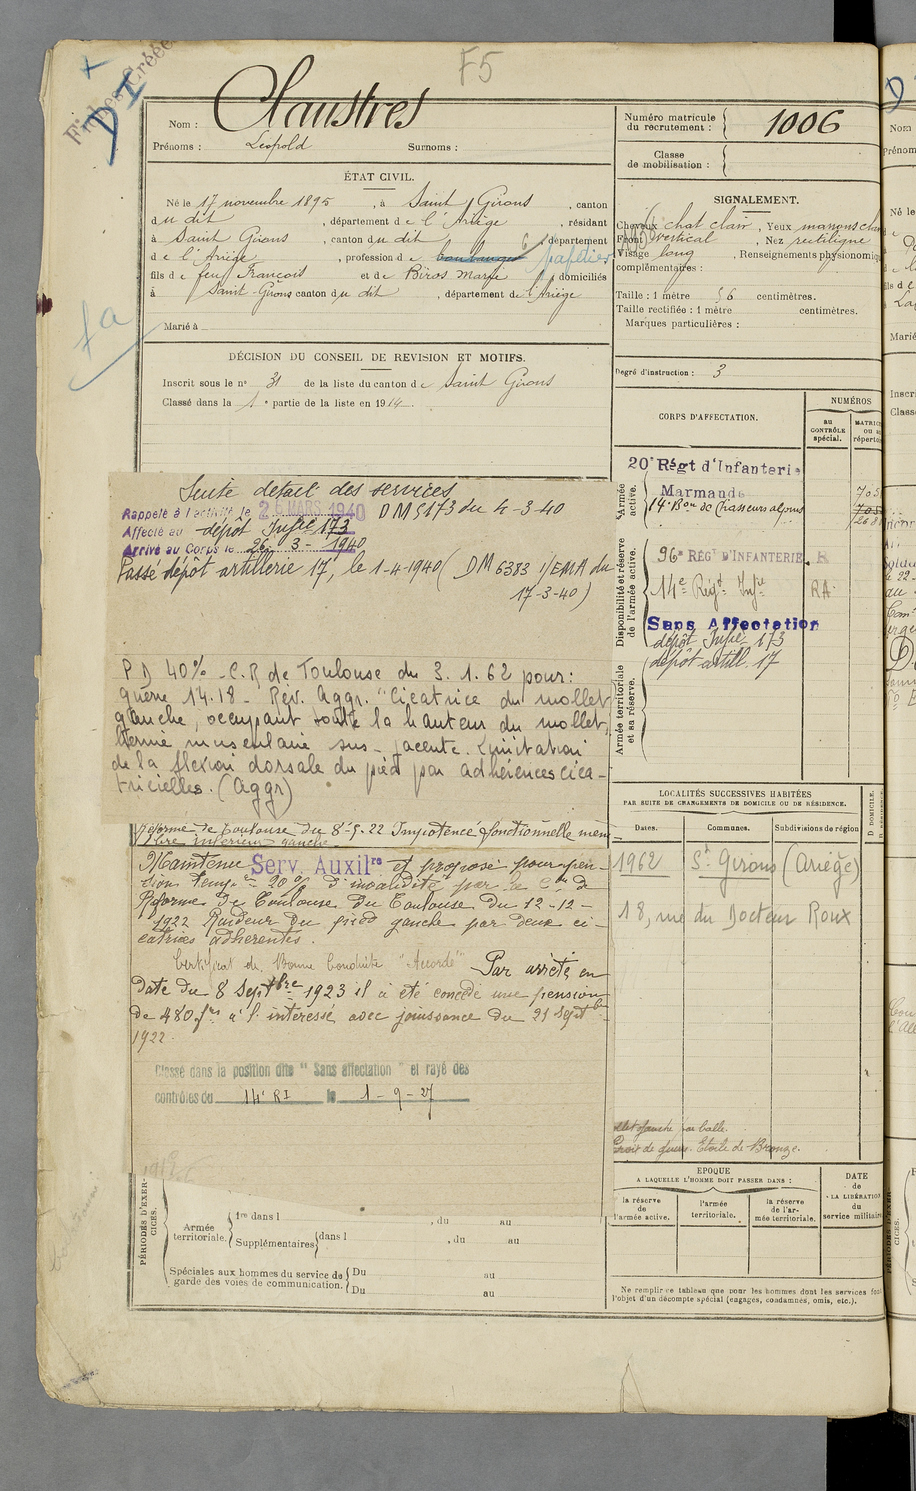 F5
Fiches Créée
D I
Nom : Claustres
Prénoms : Léopold Surnoms :
Numéro matricule du recrutement : 1006
Classe de mobilisation :
ÉTAT CIVIL.
Né le 17 novembre 1895, à Saint Girons, canton
du dit, département de l'Ariège, résidant
à Saint Girons, canton du dit, département
de l'Ariège, profession de boulanger papetier
fils de feu François et de Biros Marie, domiciliés
à Saint-Girons canton du dit, département de l'Ariège
Marié à
SIGNALEMENT.
Cheveux chat clair, Yeux marrons clair
Front vertical, Nez rectiligne
Visage long, Renseignements physionomiq
complémentaires :
Taille : 1 mètre 56 centimètres.
Taille rectifiée : 1 mètre centimètres.
Marques particulières :
Degré d'instruction : 3
fa
DÉCISION DU CONSEIL DE REVISION ET MOTIFS.
Inscrit sous le n° 31 de la liste du canton de Saint Girons
Classé dans la 1e partie de la liste en 1914.
CORPS D'AFFECTATION.
NUMÉROS
au CONTRÔLE spécial.
MATRIC OU AU répertoi
Armée active.
20e Régt d'Infanterie
Marmande
14e Bon de Chasseurs alpins
Disponibilité et réserve de l'armée active.
96e RÉGt D'INFANTERIE. R
14e Régt Infie RA
Sans Affectation
dépôt Infie 173
dépôt artill. 17
Armée territoriale et sa réserve.
Suite détail des services
Rappelé à l'activité le 26 MARS 1940 DM 5173 du 4-3-40
Affecté au dépôt Infie 173
Arrivé au Corps le 26 - 3 - 1940
Passé dépôt artillerie 17, le 1-4-1940 (DM 6383 1/EMA du
17-3-40)
P D 40% - C.R de Toulouse du 3.1.62 pour:
guerre 14.18 - Rev. Aggr. "Cicatrice du mollet
gauche, occupant toute la hauteur du mollet,
hernie musculaire sus-jacente. Limitation
de la flexion dorsale du pied par adhérences cica-
tricielles. (Aggr)
Réforme de Toulouse du 8-5-22 Impotence fonctionnelle mem
bre inférieur gauche
Maintenu Serv. Auxilre et proposé pour pen-
sion tempre 20% d'invalidité par la Con de
Réforme de Toulouse du Toulouse du 12-12-
1922 Raideur du pied gauche par deux ci-
catrices adhérentes.
Certificat de Bonne Conduite "Accordé" Par arrêté en
date du 8 Septbre 1923 il a été concédé une pension
de 480 frs à l'intéressé avec jouissance du 21 Septbre
1922.
Classé dans la position dite "Sans affectation" et rayé des
contrôles du 14e RI le 1-9-27
LOCALITÉS SUCCESSIVES HABITÉES
PAR SUITE DE CHANGEMENTS DE DOMICILE OU DE RÉSIDENCE.
Dates. Communes. Subdivisions de région
1962 St Girons (Ariège)
18, rue du Docteur Roux
mollet gauche par balle.
Croix de guerre. Etoile de Bronze.
ÉPOQUE
A LAQUELLE L'HOMME DOIT PASSER DANS :
la réserve de l'armée active.
l'armée territoriale.
la réserve de l'armée territoriale.
DATE de LA LIBÉRATION du service militaire
PÉRIODES D'EXERCICES.
Armée territoriale.
1re dans l , du au
Supplémentaires dans l , du au
Spéciales aux hommes du service de garde des voies de communication.
Du au
Du au
Ne remplir ce tableau que pour les hommes dont les services font
l'objet d'un décompte spécial (engagés, condamnés, omis, etc.).